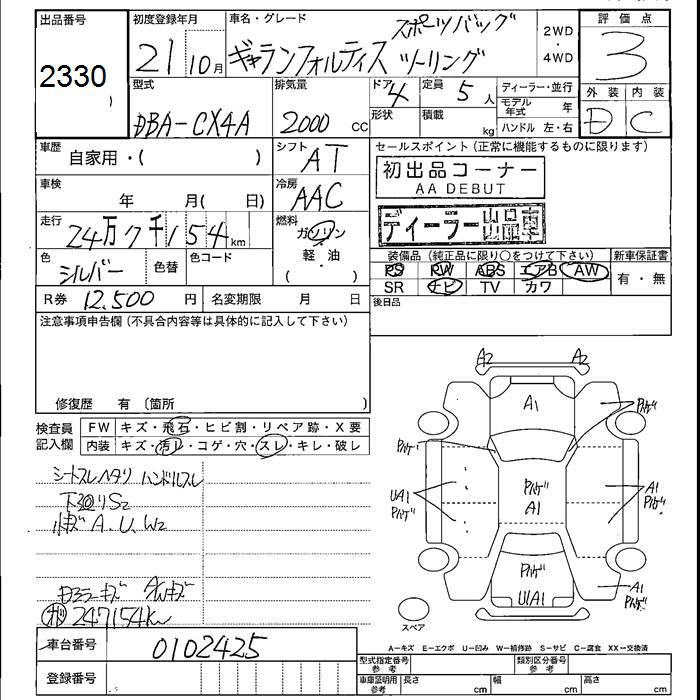 出品番号
2330
)
初度登録年月
21 10月
車名・グレード
スポーツバッグ
ギャランフォルティス ツーリング
2WD
・
4WD
評価点
3
外装 内装
D C
型式
DBA-CX4A
排気量
2000 CC
ドア 4
形状
定員 5 人
積載 kg
ディーラー・並行
モデル年式 年
ハンドル 左・右
車歴
自家用・( )
シフト
AT
車検
年 月( 日)
冷房
AAC
走行
24万7千154km
燃料
ガソリン
軽・油
( )
色
シルバー
色替
色コード
R券 12,500 円
名変期限 月 日
セールスポイント(正常に機能するものに限ります)
初出品コーナー
AA DEBUT
ディーラー出品車
装備品(純正品に限り○をつけて下さい)
新車保証書
PS PW ABS エアB AW
SR ナビ TV カワ
有・無
後日品
注意事項申告欄(不具合内容等は具体的に記入して下さい)
修復歴 有 〔箇所 〕
検査員
記入欄
FW キズ・飛石・ヒビ割・リペア跡・X要
内装 キズ・汚レ・コゲ・穴・スレ・キレ・破レ
シートスレヘタリ ハンドルスレ
下廻りS2
小キズA.U.W2
ドアミラーキズ AWキズ
247154km
車台番号
0102425
登録番号
A2 A2
A1
Pハゲ
Pハゲ
Pハゲ
A1
UA1
Pハゲ
A1
Pハゲ
Pハゲ
UA1
A1
Pハゲ
スペア
A-キズ E-エクボ U-凹み W-補修跡 S-サビ C-腐食 XX-交換済
型式指定番号
参考
類別区分番号
参考
車庫証明用
参考
長さ cm
幅 cm
高さ cm